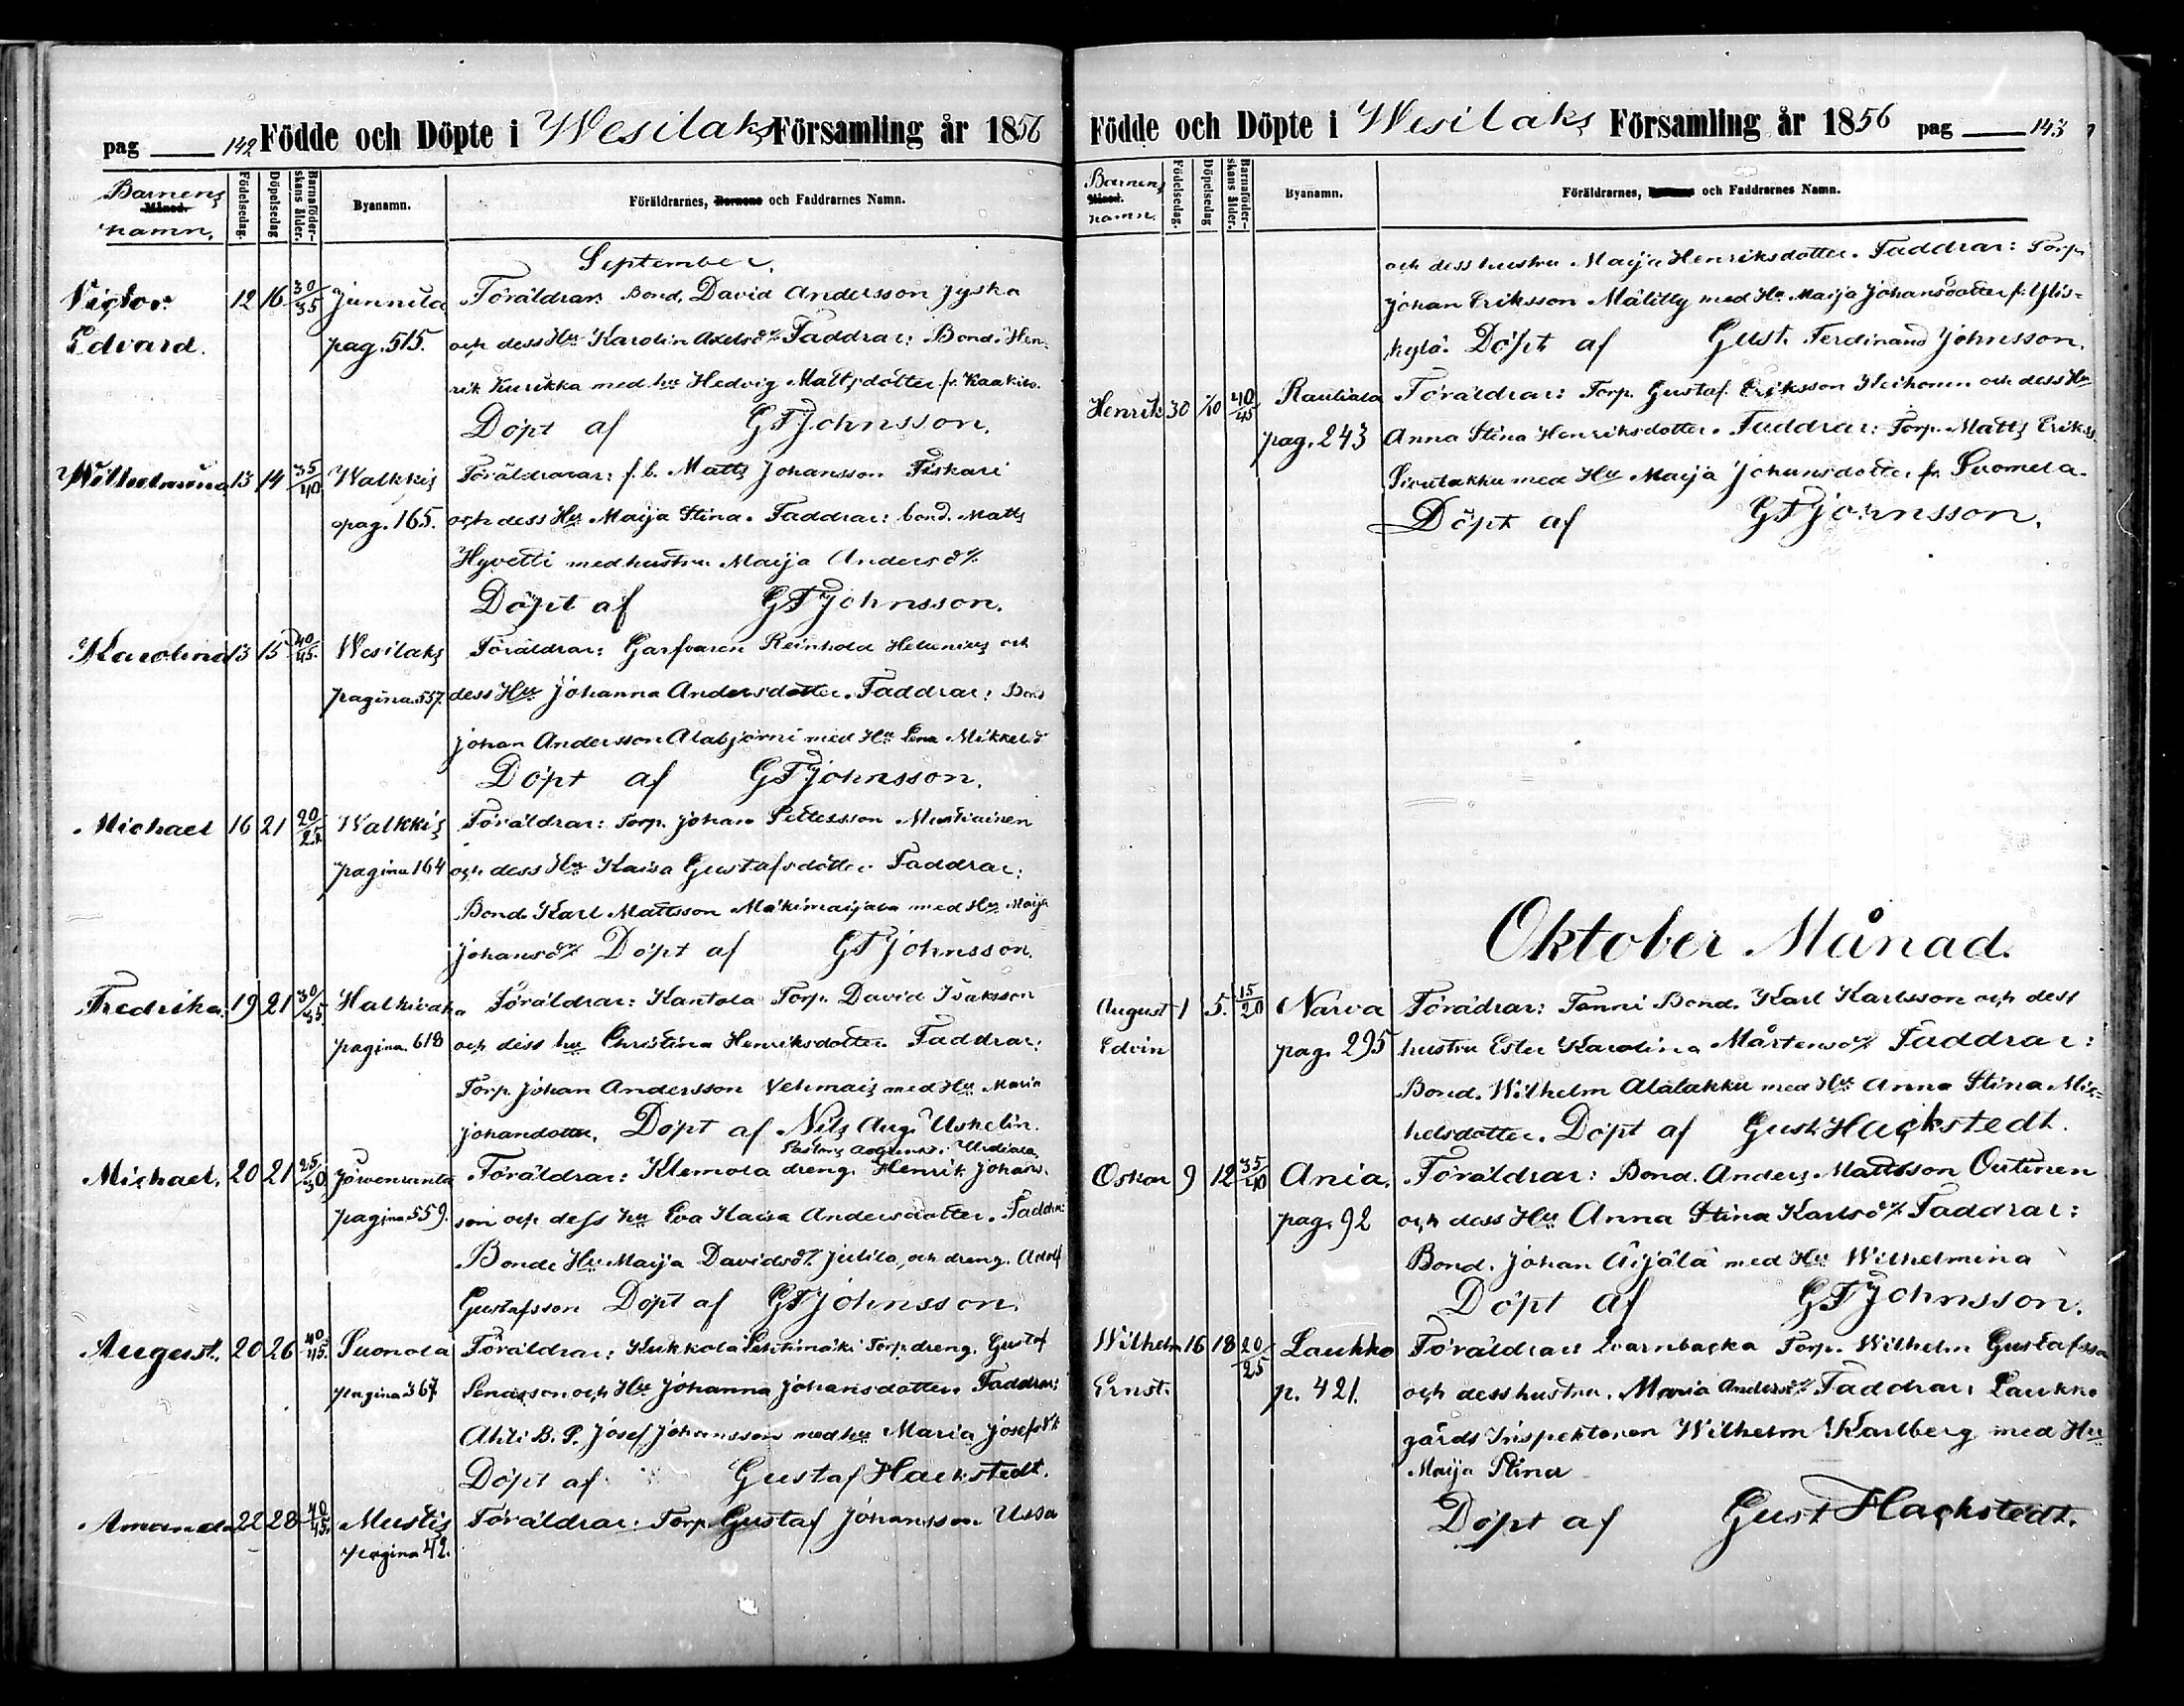 pag 142 Födde och Döpte i Wesilaks Församling år 1856
Barnens Månad. namn. Födelsedag. Döpelsedag Barnaföderskans ålder. Byanamn. Föräldrarnes, Barnens och Faddrarnes Namn.
September.
Victor 12 16 30/35 Junnila Föräldrar: Bond. David Andersson Jyska
Edvard. pag. 515. och dess Hu Karolin Axelsdr Faddrar: Bond. Hen-
rik Kurikka med hu Hedvig Mattsdotter fr.
Döpt af GFJohnsson.
Wilhelmina 13 14 35/40 Walkkis Föräldrarar: f. b. Matts Johansson Fiskari
pag. 165. och dess Hu Maija Stina. Faddrar: bond. Matts
Hyvetti med hustru Maija Andersdr
Döpt af GFJohnsson.
Karolina 13 15 40/45. Wesilaks Föräldrar: Garfvaren Reinhold Helenius och
pagina. 557. dess Hu Johanna Andersdotter. Faddrar: Bond
Johan Andersson Alabjörni med Hu Lena Mikkelsd
Döpt af GFJohnsson.
Michael 16 21 20/25. Walkkis Föräldrar: Torp. Johan Pettersson Mustiainen
pagina 164 och dess Hu Kaisa Gustafsdotter Faddrar:
Bond. Karl Mattsson Mäkimaijala med Hu Maija
Johansdr Döpt af GFJohnsson.
Fredrika. 19 21 30/35. Halkivaha Föräldrar: Kantola Torp. David Isaksson
pagina. 618 och dess hu Christina Henriksdotter. Faddrar:
Torp. Johan Andersson Vehmais med Hu Maria
Johandotter. Döpt af Nils Aug. Uskelin.
Pastors Adjunkt i Urdiala
Michael. 20 21 25/30 Jówenranta Föräldrar: Klemola dreng. Henrik Johans-
pagina 559. son och dess hu Eva Kaisa Andersdotter. Faddrar:
Bonde Hu Maija Davidsdr Julila, och dreng. Adolf
Gustafsson Döpt af GFJohnsson.
August. 20 26 40/45. Suonola Föräldrar: Kukkola Lehtimäki Torp. dreng. Gustaf
pagina 367 och Hu Johanna Johansdotter. Faddrar:
Ahti B. P. Josef Johansson med hu Maria Josefsdr
Döpt af Gustaf Hackstedt.
Amanda 22 28 40/45. Mustis Föräldrar: Torp. Gustaf Johansson Ussa
pagina 42.
Födde och Döpte i Wesilaks Församling år 1856 pag 143
Barnens Månad. namn. Födelsedag. Döpelsedag Barnaföderskans ålder. Byanamn. Föräldrarnes, Barnens och Faddrarnes Namn.
och dess hustru Maija Henriksdotter. Faddrar: Torp.
Johan Eriksson Mälilly med Hu Maija Johansdotter fr. Ylis-
kylä. Döpt af Gust. Ferdinand Johnsson.
Henrik 30 1/10 40/45 Rautiala Föräldrar: Torp. Gustaf Eriksson Heikonen och dess Hu
pag. 243 Anna Stina Henriksdotter. Faddrar: Torp. Matts Erikss.
Sirulakku med Hu Maija Johansdotter fr. Suomela.
Döpt af GFJohnsson.
Oktober Månad.
August 1 5. 15/20 Narva Förädrar: Tanni Bond. Karl Karlsson och dess
Edvin pag. 295 hustru Ester Karolina Mårtensdr Faddrar:
Bond. Wilhelm Alalakku med Hu Anna Stina Mic-
helsdotter. Döpt af Gust. Hackstedt.
Oskar 9 12 35/40 Ania. Föräldrar: Bond. Anders Mattsson Outinen
pag. 92 och dess Hu Anna Stina Karlsdr Faddrar:
Bond. Johan Äijälä med Hu Wilhelmina
Döpt af GFJohnsson.
Wilhelm 16 18 20/25 Laukko Föräldrar Qvarnbacka Torp. Wilhelm Gustafsson
Ernst. p. 421. och dess hustru. Maria Andersdr Faddrar: Laukko
gårds Inspektoren Wilhelm Karlberg med Hu
Maija Stina
Döpt af Gust Hackstedt.